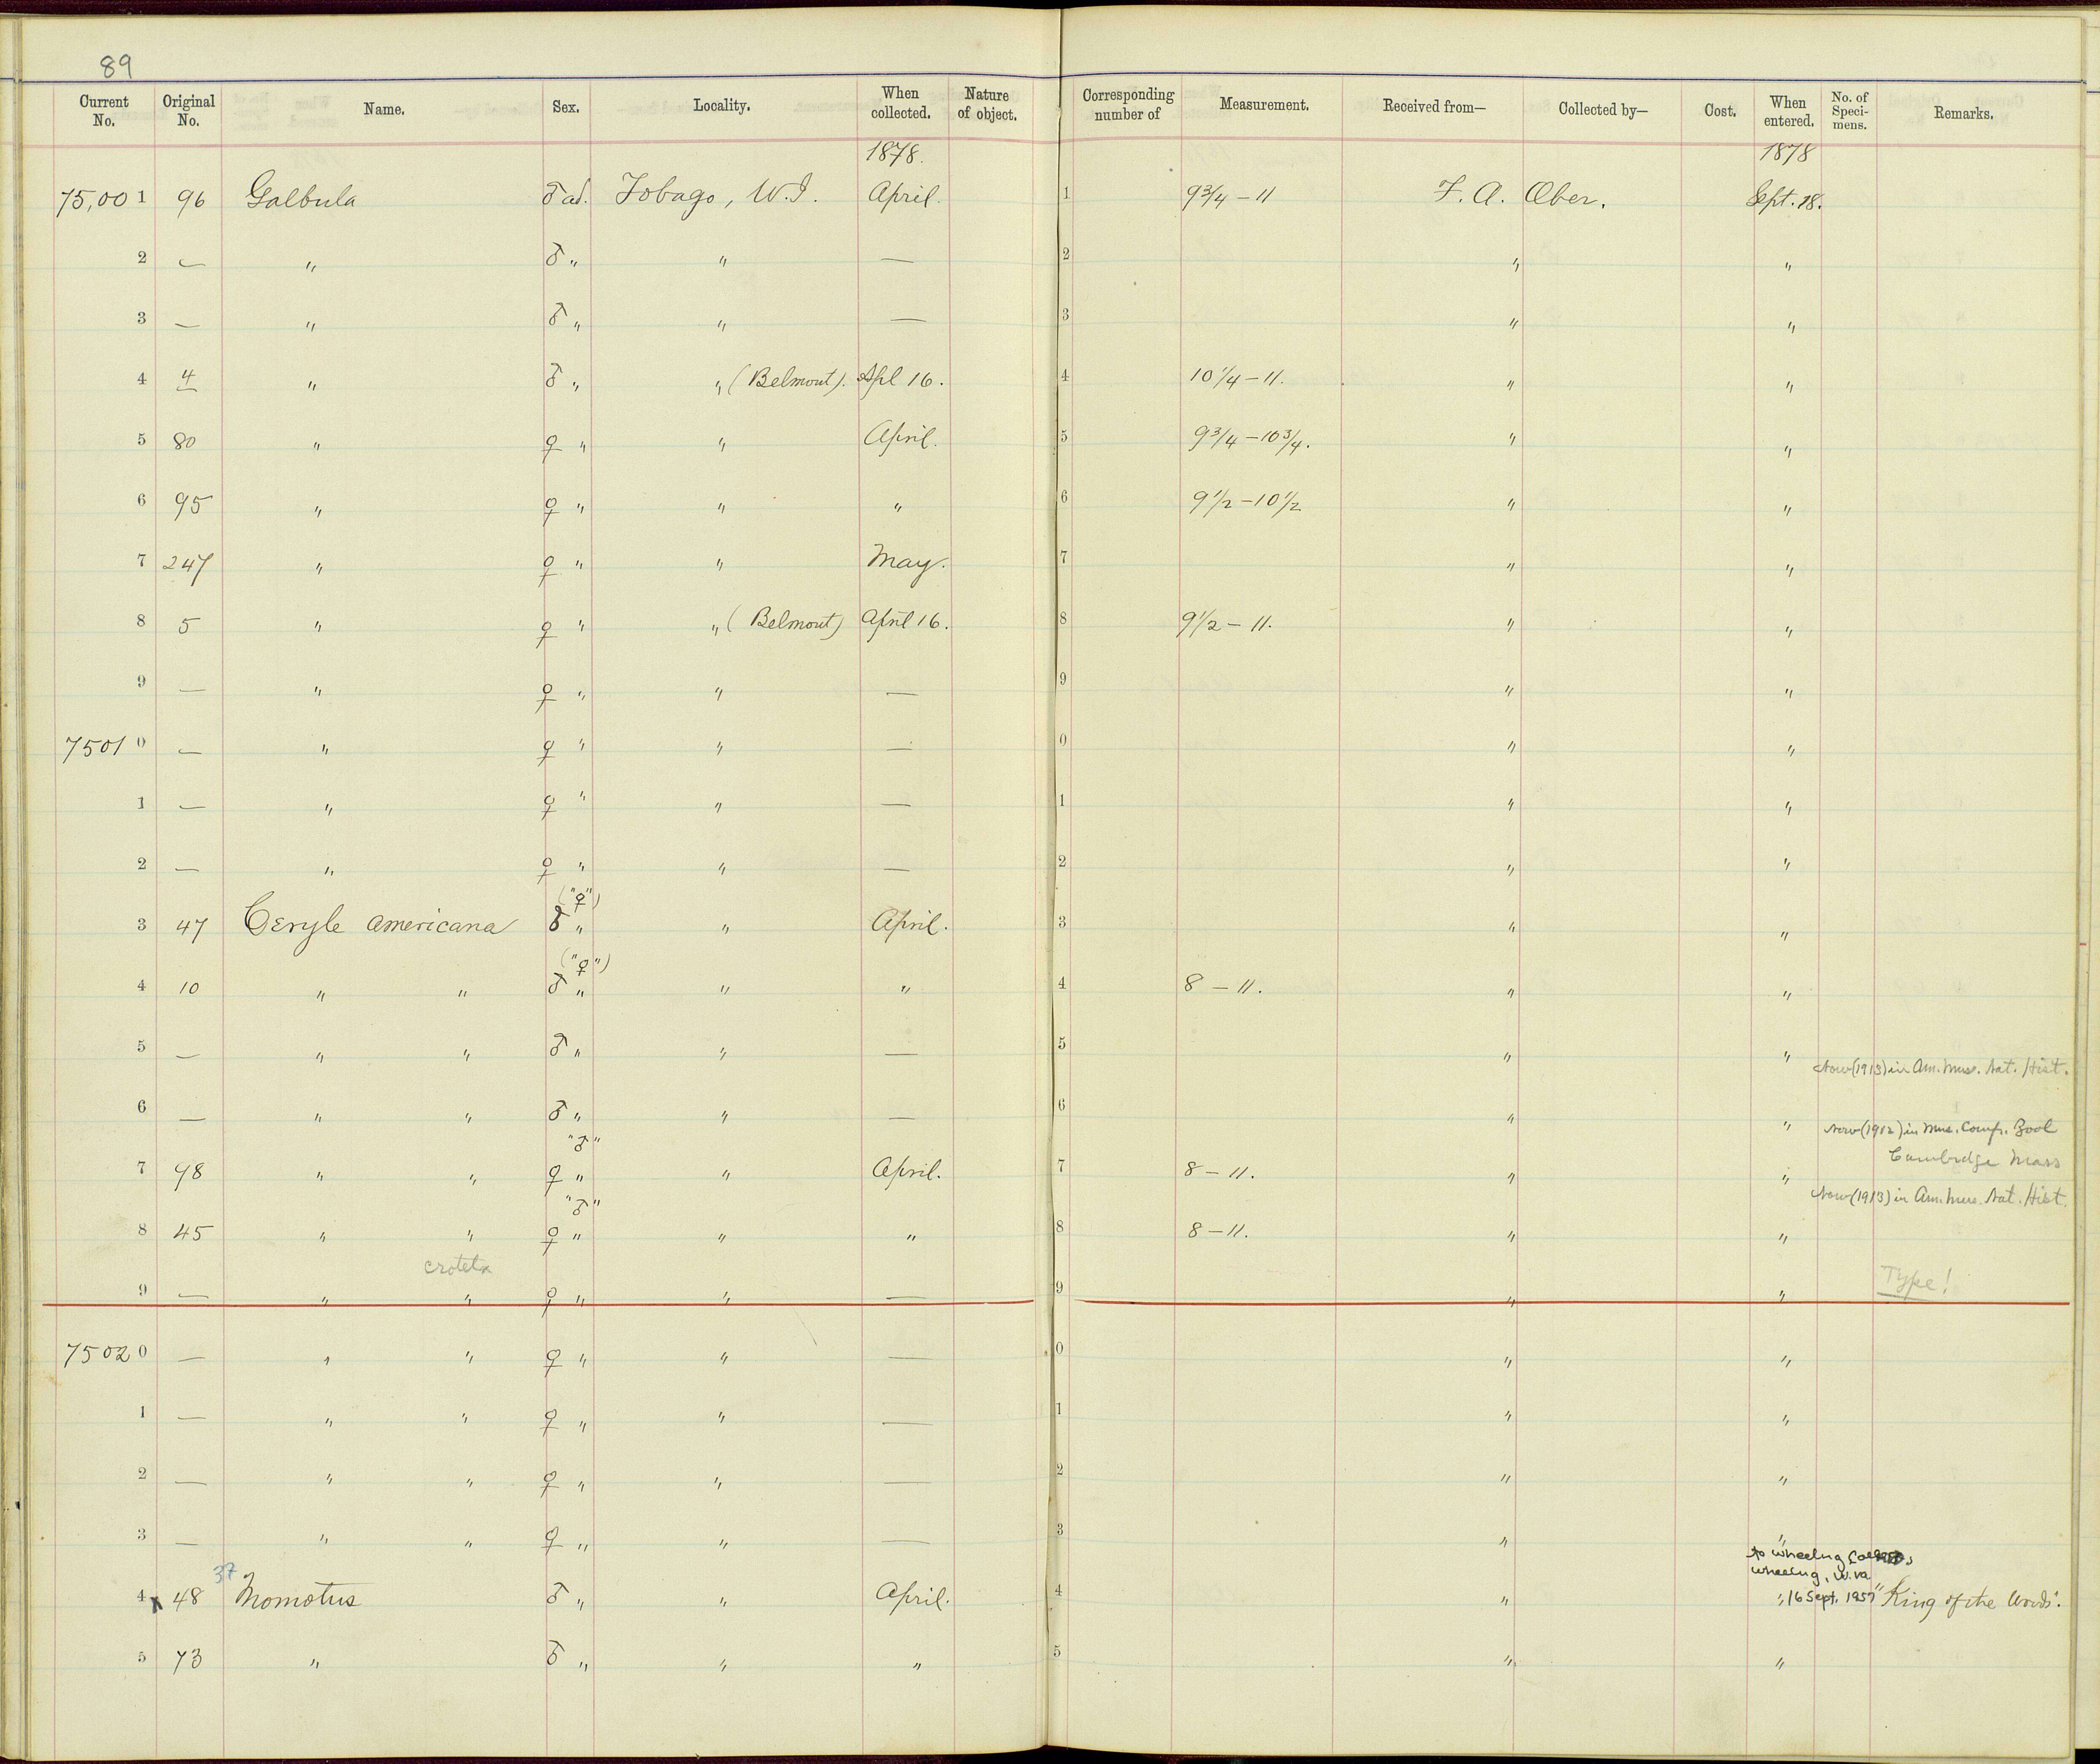 89
Current No. Original No. Name. Sex. Locality. When collected. Nature of object. Corresponding number of Measurement. Received from— Collected by— Cost. When entered. No. of Speci-mens. Remarks.
1878. 1878
75,00 1 96 Galbula ♂ ad. Tobago, W.I. April. 1 9 3/4 – 11 F. A. Ober. Sept. 18.
2 — " ♂ " " — 2 " "
3 — " ♂ " " — 3 " "
4 4 " ♂ " " (Belmont). Apl 16. 4 10 1/4 – 11. " "
5 80 " ♀ " " April. 5 9 3/4 – 10 3/4. " "
6 95 " ♀ " " " 6 9 1/2 – 10 1/2 " "
7 247 " ♀ " " May. 7 " "
8 5 " ♀ " " (Belmont) April 16. 8 9 1/2 – 11. " "
9 — " ♀ " " — 9 " "
7501 0 — " ♀ " " — 0 " "
1 — " ♀ " " — 1 " "
2 — " ♀ " " — 2 " "
("♀")
3 47 Ceryle americana ♂ " " April. 3 " "
("♀")
4 10 " " ♂ " " " 4 8 – 11. " "
5 — " " ♂ " " — 5 " "
Now (1913) in Am. Mus. Nat. Hist.
6 — " " ♂ " " — 6 " "
Now (1912) in Mus. Comp. Zool
Cambridge Mass
"♂"
7 98 " " ♀ " " April. 7 8 – 11. " "
Now (1913) in Am. Mus. Nat. Hist.
"♂"
8 45 " " ♀ " " " 8 8 – 11. " "
croteta
9 — " " ♀ " " — 9 " " Type!
7502 0 — " " ♀ " " — 0 " "
1 — " " ♀ " " — 1 " "
2 — " " ♀ " " — 2 " "
3 — " " ♀ " " — 3 " "
to Wheeling
Wheeling, W. Va
37
4 x 48 Momotus ♂ " " April. 4 " " 16 Sept. 1957 "King of the Woods".
5 73 " ♂ " " " 5 " "